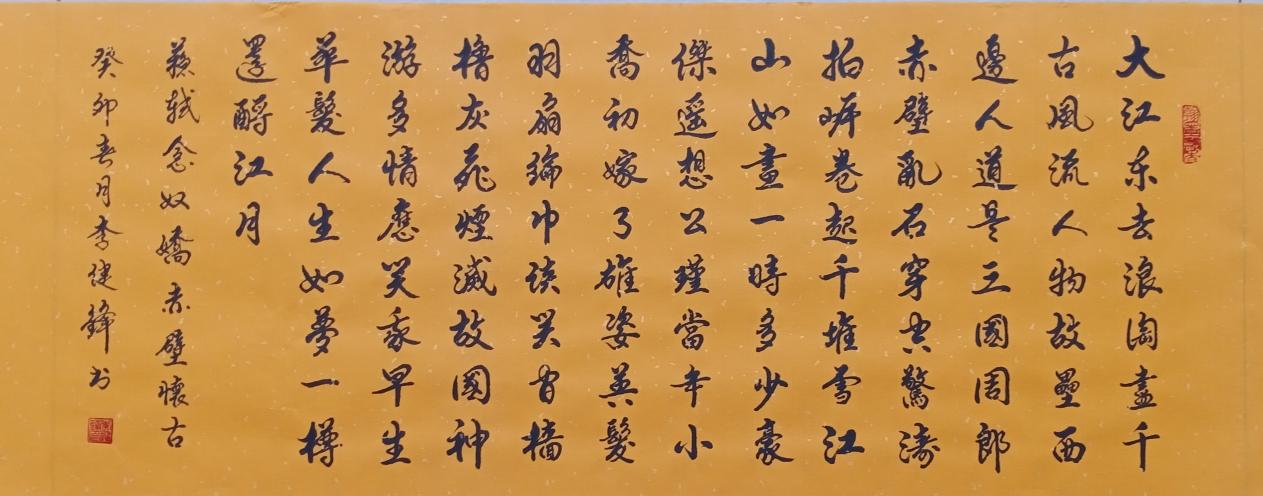 大江东去浪淘盡千
古風流人物故壘西
邊人道是三國周郎
赤壁亂石穿空驚濤
拍岸卷起千堆雪江
山如畫一時多少豪
傑遥想公瑾當年小
喬初嫁了雄姿英髮
羽扇綸巾談笑间檣
櫓灰飛煙滅故國神
游多情應笑我早生
華髮人生如夢一樽
還酹江月
蘇軾念奴嬌赤壁懷古
癸卯春月李建鋒书